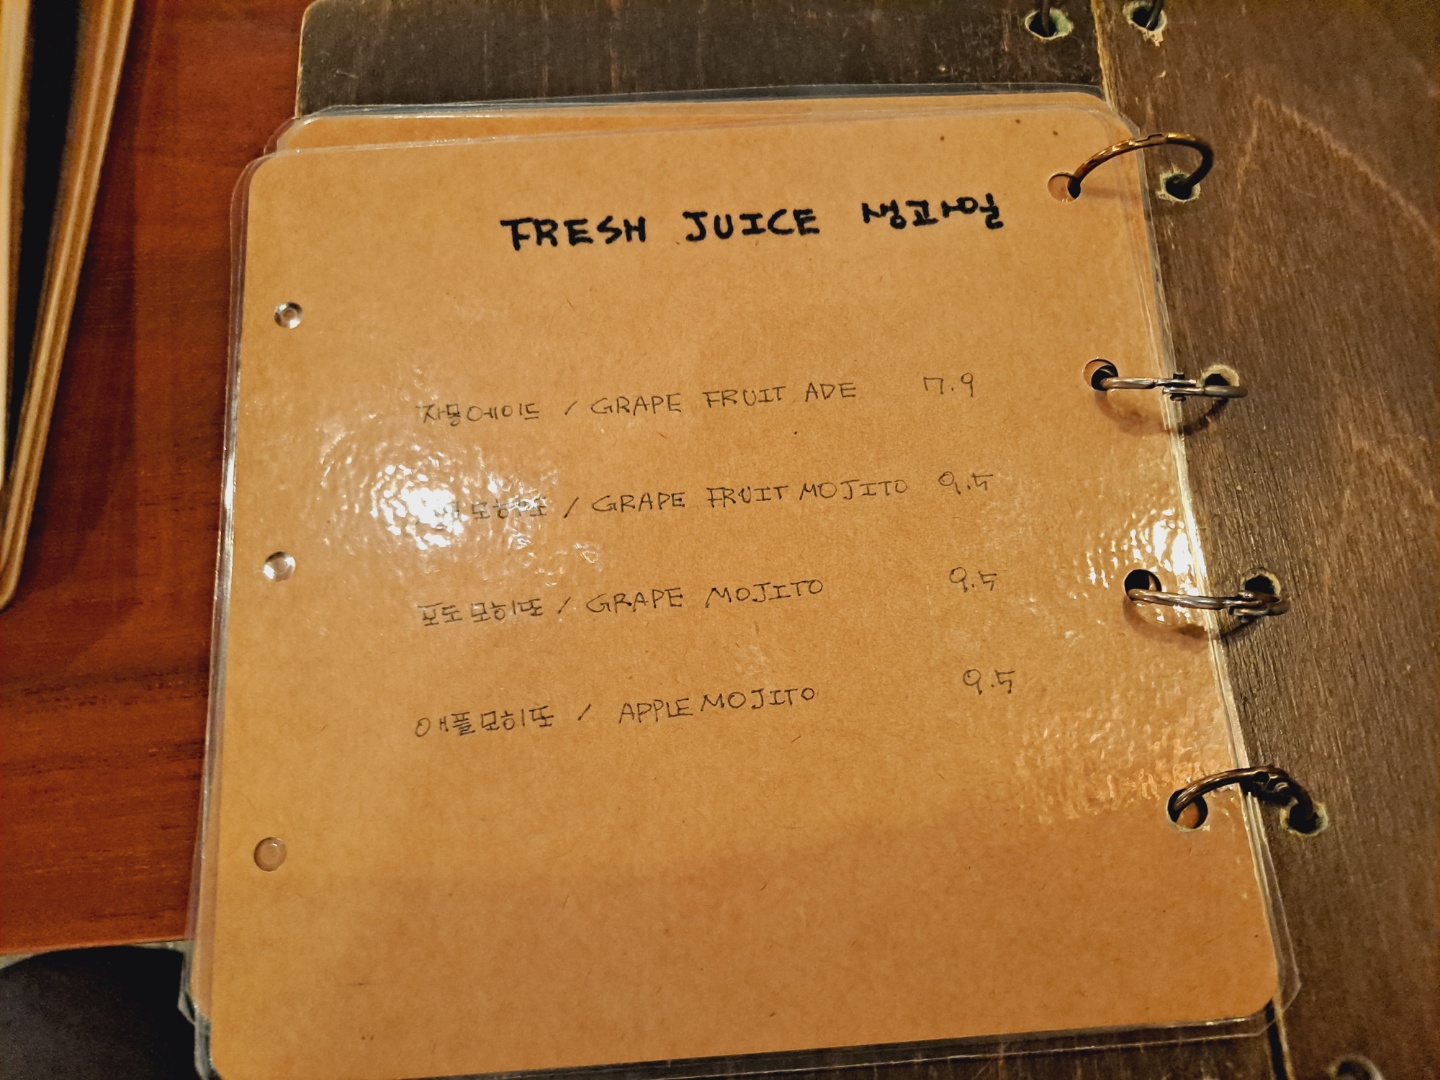 FRESH JUICE 생과일
자몽에이드 / GRAPE FRUIT ADE 7.9
모히또 / GRAPE FRUIT MOJITO 9.5
포도 모히또 / GRAPE MOJITO 9.5
애플모히또 / APPLE MOJITO 9.5